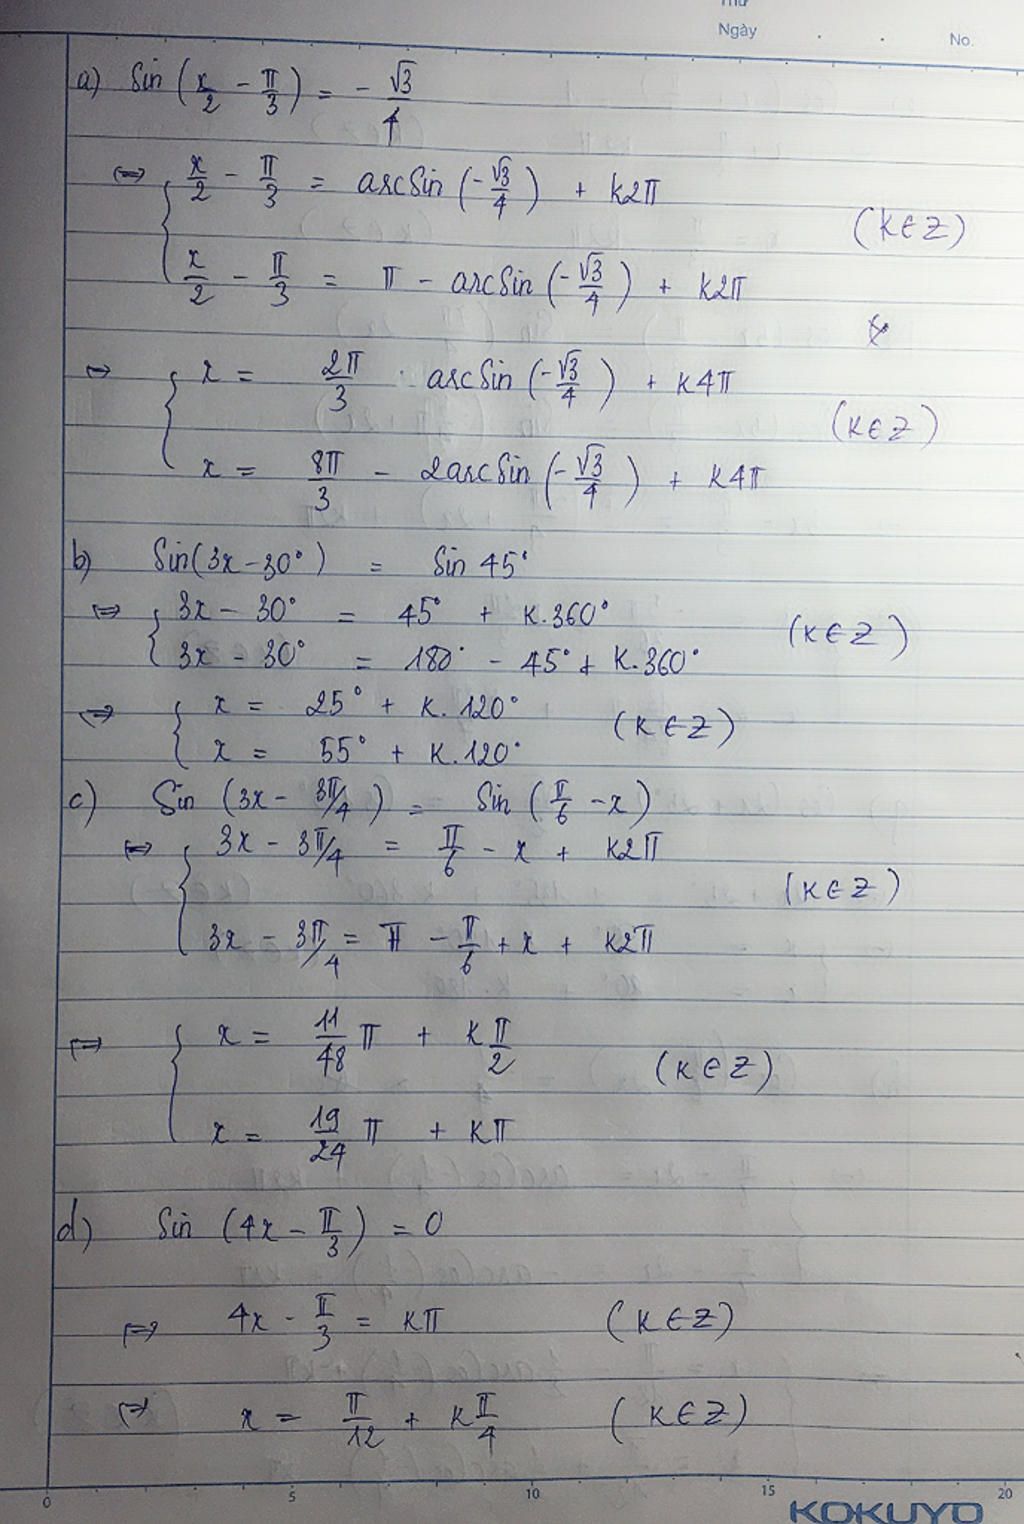 Thứ
Ngày . . No.
a) Sin (x/2 - π/3) = - √3/4
⇔ { x/2 - π/3 = arcSin (-√3/4) + k2π
(k∈Z)
x/2 - π/3 = π - arcSin (-√3/4) + k2π
⇔ { x = 2π/3 · arcSin (-√3/4) + k4π
(k∈Z)
x = 8π/3 - 2arcSin (-√3/4) + k4π
b) Sin(3x-30°) = Sin 45°
⇔ { 3x - 30° = 45° + k.360°
(k∈Z)
3x - 30° = 180° - 45° + k.360°
⇔ { x = 25° + k.120°
(k∈Z)
x = 55° + k.120°
c) Sin (3x - 3π/4) = Sin (π/6 - x)
⇔ { 3x - 3π/4 = π/6 - x + k2π
(k∈Z)
3x - 3π/4 = π - π/6 + x + k2π
⇔ { x = 11/48 π + k π/2
(k∈Z)
x = 19/24 π + kπ
d) Sin (4x - π/3) = 0
⇔ 4x - π/3 = kπ (k∈Z)
⇔ x = π/12 + k π/4 (k∈Z)
0 5 10 15 20
KOKUYO